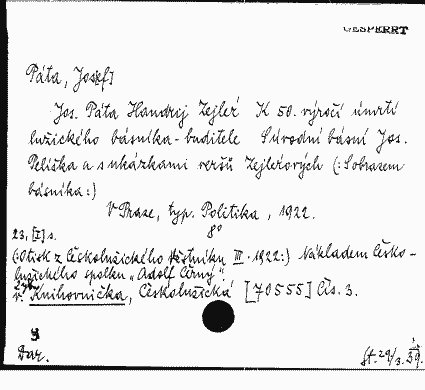 GESPERRT
Páta, Josef]
Jos. Páta Handrij Zejleŕ K 50. výročí úmrtí
lužického básníka-buditele S úvodní básní Jos.
Pelíška a s ukázkami veršů Zejleŕových (: S obrazem
básníka:)
V Praze, typ. Politika, 1922.
23, [I] s. 8°
(: Otisk z Českolužického Věstníku III. 1922:) Nákladem Česko-
lužického spolku „Adolf Černý".
v. Knihovnička, Českolužická [70555] Čís. 3.
Dar.